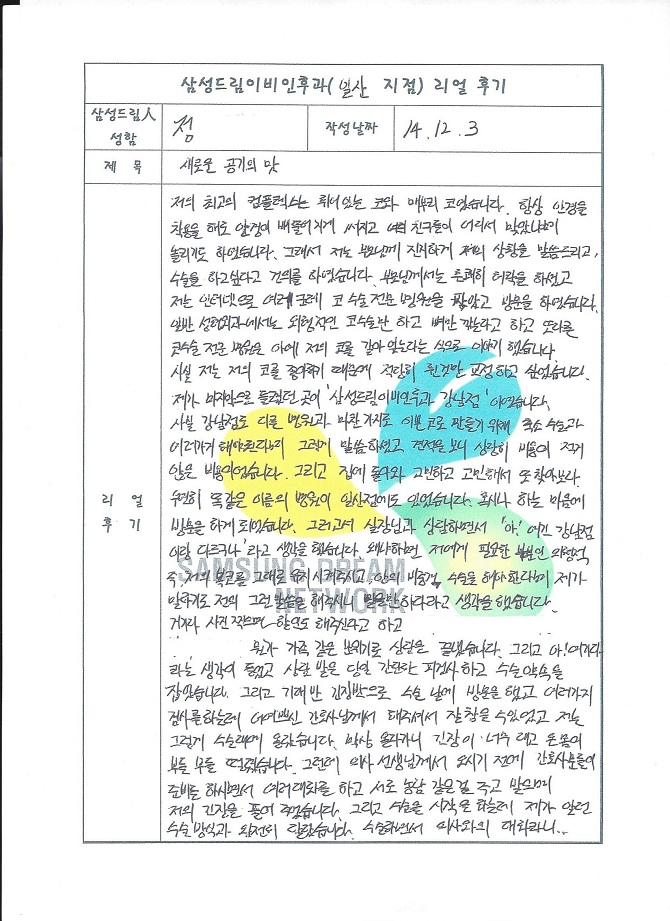 삼성드림이비인후과(일산 지점) 리얼 후기
삼성드림人
성함
점
작성날짜
14.12.3
제 목
새로운 공기의 맛
리 얼
후 기
저의 최고의 컴플렉스는 휘어있는 코와 매부리 코였습니다. 항상 안경을
착용을 해도 안경이 삐뚤어지게 써지고 여러 친구들이 어디서 맞았냐며
놀리기도 하였습니다. 그래서 저는 부모님께 진지하게 저의 상황을 말씀드리고,
수술을 하고싶다고 건의를 하였습니다. 부모님께서는 흔쾌히 허락을 하셨고
저는 인터넷으로 여러 코 수술 전문 병원을 찾았고 방문을 하였습니다.
일반 성형외과에서는 외형적인 코수술만 하고 뼈만 깎는다고 하고 또다른
코수술 전문 병원은 아예 저의 코를 갈아 엎는다는 식으로 이야기 했습니다.
사실 저는 저의 코를 좋아하기 때문에 적당히 휜것만 교정하고 싶었습니다.
제가 마지막으로 들렸던 곳이 '삼성드림이비인후과 강남점' 이었습니다.
사실 강남점도 다른 병원과 마찬가지로 이쁜코로 만들기 위해 축소 수술과
여러가지 해야된다며 그렇게 말씀하셨고 견적을 보니 상당히 비용이 적지
않은 비용이었습니다. 그리고 집에 돌아와 고민하고 고민해서 또 찾아보다.
우연히 똑같은 이름의 병원이 일산점에도 있었습니다. 혹시나 하는 마음에
방문을 하게 되었습니다. 그러고서 실장님과 상담하면서 '아! 여긴 강남점
이랑 다르구나' 라고 생각을 했습니다. 왜냐하면 저에게 필요한 부분인 외형적
즉, 저의 복코를 그대로 유지 시켜주시고, 안의 비중격 수술을 해야 한다며 제가
말하기도 전의 그런 말씀을 해주시니 믿을만 하다라고 생각을 했습니다.
거기다 사진 찍으면 할인도 해주신다고 하고
효과 가족 같은 분위기로 상담은 끝냈습니다. 그리고 아! 여기다
라는 생각이 들었고 상담 받은 당일 간단한 피검사 하고 수술약속을
잡았습니다. 그리고 기대반 긴장반으로 수술 날에 방문을 했고 여러가지
검사를 하는데 어여쁘신 간호사님께서 해주셔서 잘 참을 수 있었고 저는
그렇게 수술대에 올랐습니다. 막상 올라가니 긴장이 너무 돼고 온몸이
부들 부들 떨렸습니다. 그런데 의사 선생님께서 오시기 전에 간호사분들이
준비를 하시면서 여러대화를 하고 서로 농담 같은걸 주고 받으며
저의 긴장을 풀어 주었습니다. 그리고 수술을 시작을 하는데 제가 알던
수술방식과 완전히 달랐습니다. 수술하면서 의사와의 대화라니...
SAMSUNG DREAM
NETWORK